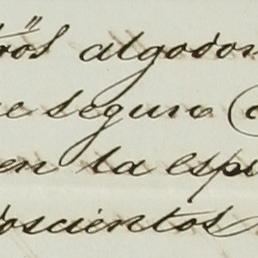 algodon
segura
en la espe
doscientos